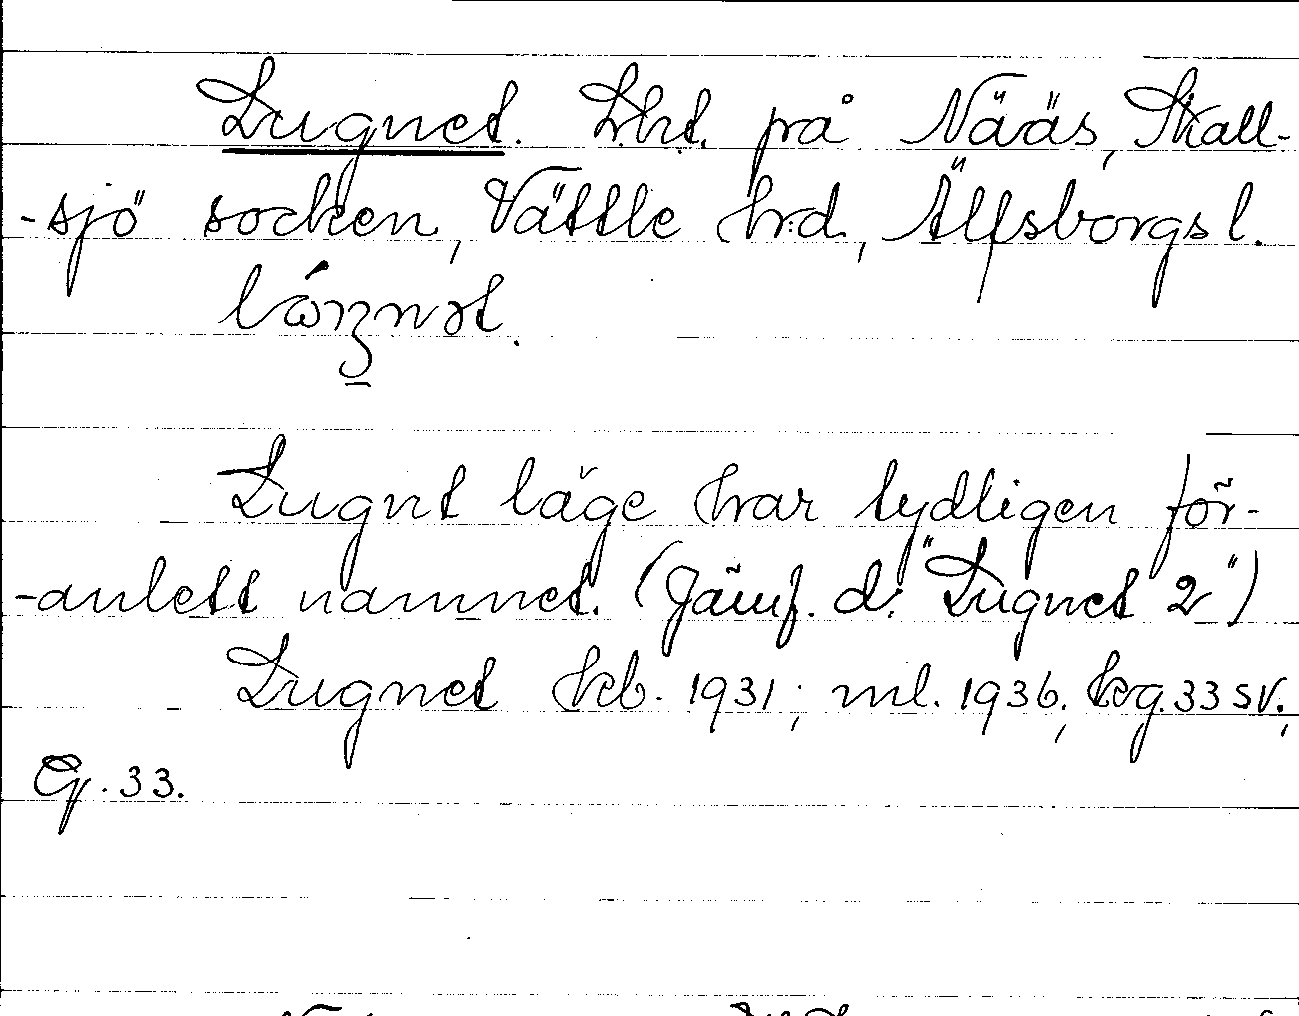 Lugnet. Lht. på Nääs, Skall-
-sjö socken, Vättle hrd, Älfsborgs l.
Lugnt läge har tydligen för-
-anlett namnet. (Jämf. d. "Lugnet 2")
Lugnet kb. 1931; ml. 1936, kg. 33 sv.,
Cg. 33.